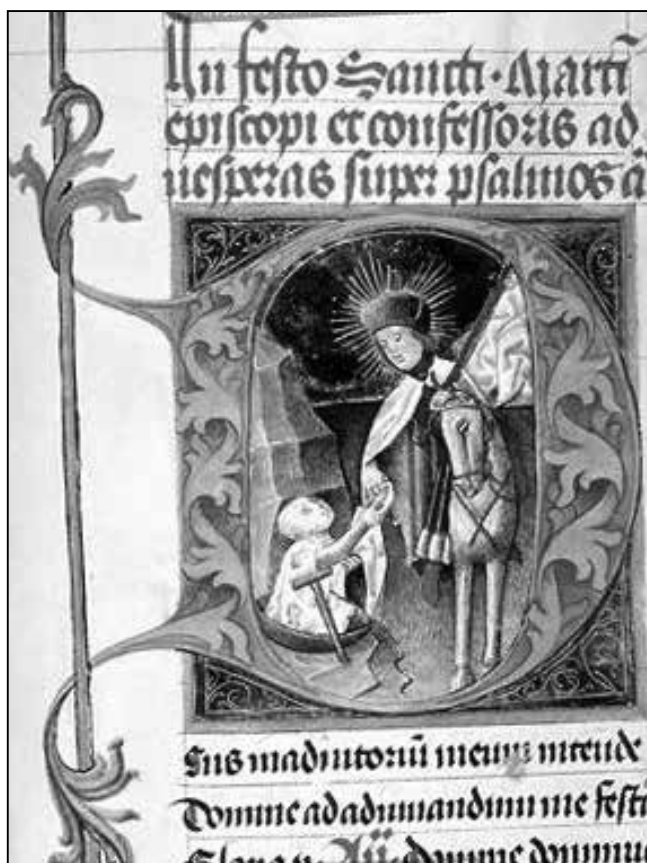 In festo Sancti · Martī
episcopi et confessoris ad
uesperas super psalmos ā
Deus in adiutoriū meum intende
Domine ad adiuuandum me festi
Gloria